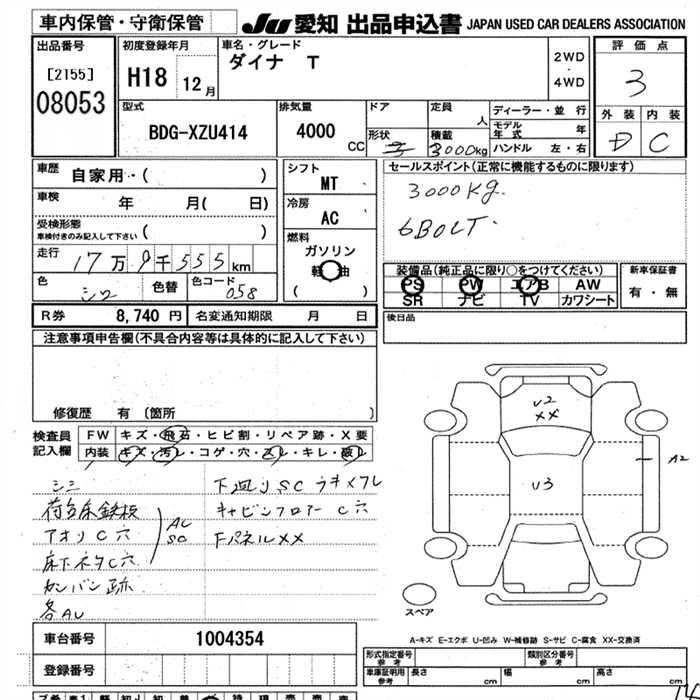 車内保管・守衛保管
JU 愛知 出品申込書 JAPAN USED CAR DEALERS ASSOCIATION
出品番号
[2155]
08053
初度登録年月
H18 12月
車名・グレード
ダイナ T
2WD
・
4WD
評価点
3
外装 内装
D C
型式
BDG-XZU414
排気量
4000
CC
ドア
形状
定員
人
積載
3000kg
ディーラー・並行
モデル年式 年
ハンドル 左・右
車歴
自家用・( )
車検
年 月( 日)
受検形態
車検付きのみ記入して下さい
( )
走行
17万9千555km
色
シロ
色替
色コード
058
シフト
MT
冷房
AC
燃料
ガソリン
軽油
( )
セールスポイント(正常に機能するものに限ります)
3000Kg.
6BOLT.
装備品(純正品に限り○をつけてください)
PS PW エアB AW
SR ナビ TV カワシート
新車保証書
有・無
R券 8,740円 名変通知期限 月 日
後日品
注意事項申告欄(不具合内容等は具体的に記入して下さい)
修復歴 有 〔箇所 〕
検査員
記入欄
FW キズ・飛石・ヒビ割・リペア跡・X要
内装 キズ・汚レ・コゲ・穴・スレ・キレ・破レ
シミ
荷台床鉄板
アオリC穴
床下ネタC穴
AU
SC
カンバン跡
各AU
下廻りSC
キャビンフロアーC穴
FパネルXX
U2
XX
U3
A2
スペア
A-キズ E-エクボ U-凹み W-補修跡 S-サビ C-腐食 XX-交換済
車台番号 1004354
登録番号
形式指定番号
参考
類別区分番号
参考
車庫証明用
参考
長さ cm
幅 cm
高さ cm